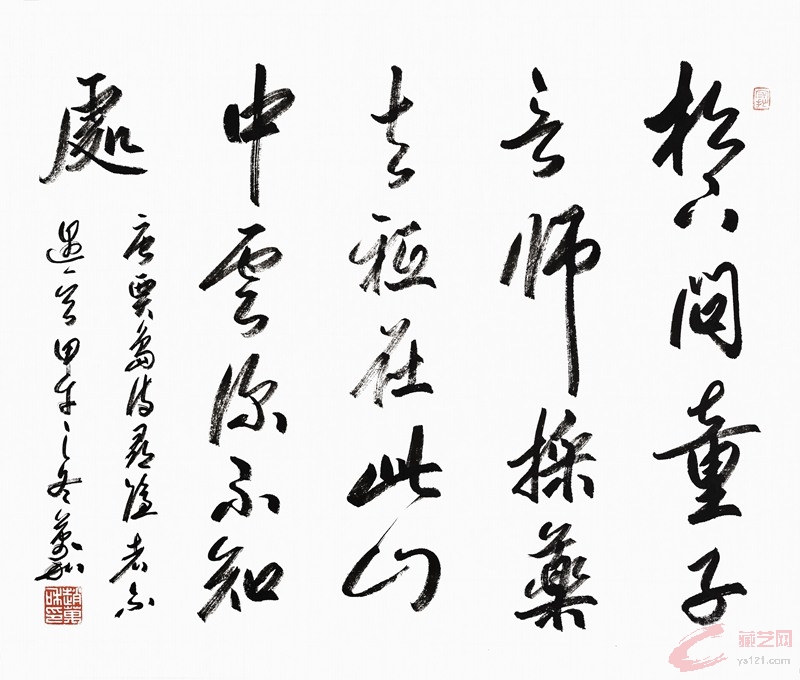 松下問童子
言師採藥
去祗在此山
中雲深不知
處
唐賈島詩尋隱者不
遇一首甲午之冬萬
藏艺网
ys121.com